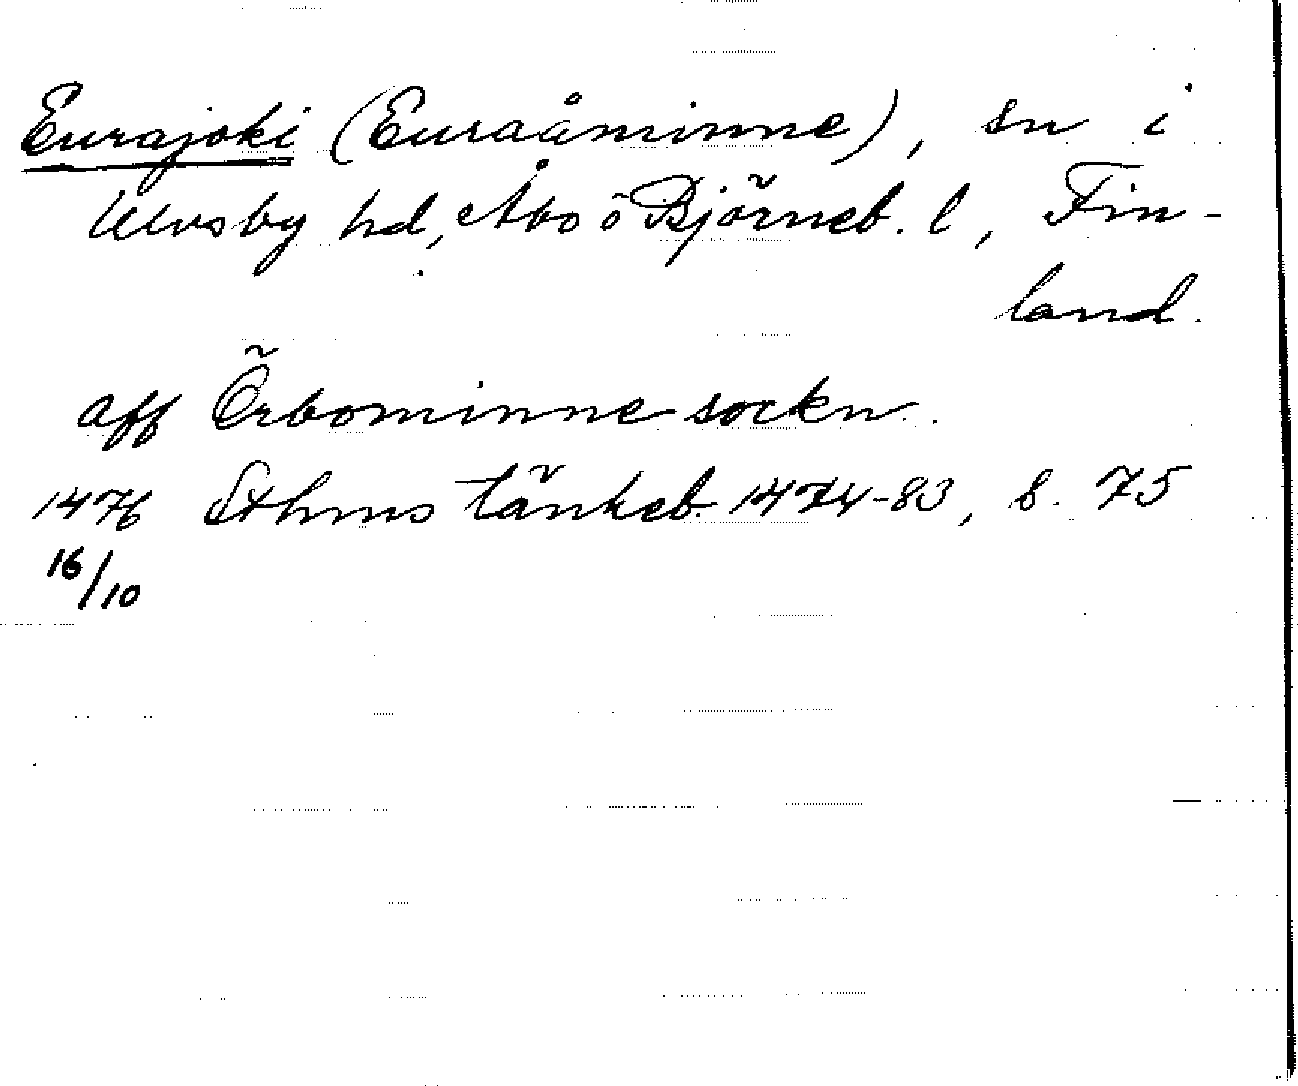 Eurajoki (Euraåminne), sn i
Ulvsby hd, Åbo ö Björneb. l, Fin-
land.
aff Örbominne sockn.
1476 Sthms tänkeb. 1474-83, s. 75
16/10